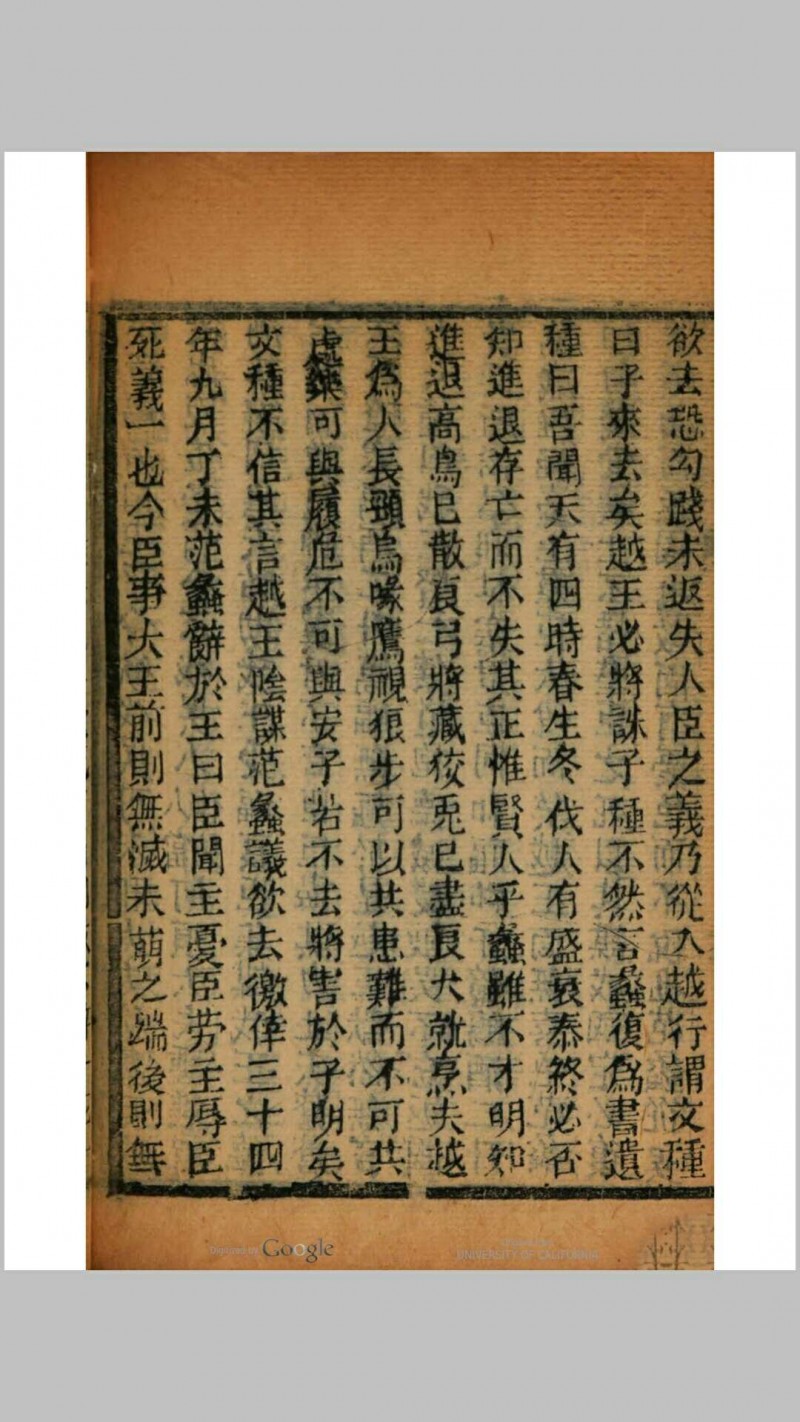 欲去恐勾踐未返失人臣之義乃從入越行謂文種
曰子來去矣越王必將誅子種不然言蠡復爲書遺
種曰吾聞天有四時春生冬伐人有盛衰泰終必否
知進退存亡而不失其正惟賢人乎蠡雖不才明知
進退高鳥已散良弓將藏狡兎已盡良犬就烹夫越
王爲人長頸鳥喙鷹視狼步可以共患難而不可共
處樂可與履危不可與安子若不去將害於子明矣
文種不信其言越王陰謀范蠡議欲去徼倖二十四
年九月丁未范蠡辭於王曰臣聞主憂臣劳主辱臣
死義一也今臣事大王前則無滅未萌之端後則無
Digitized by Google
UNIVERSITY OF CALIFORNIA